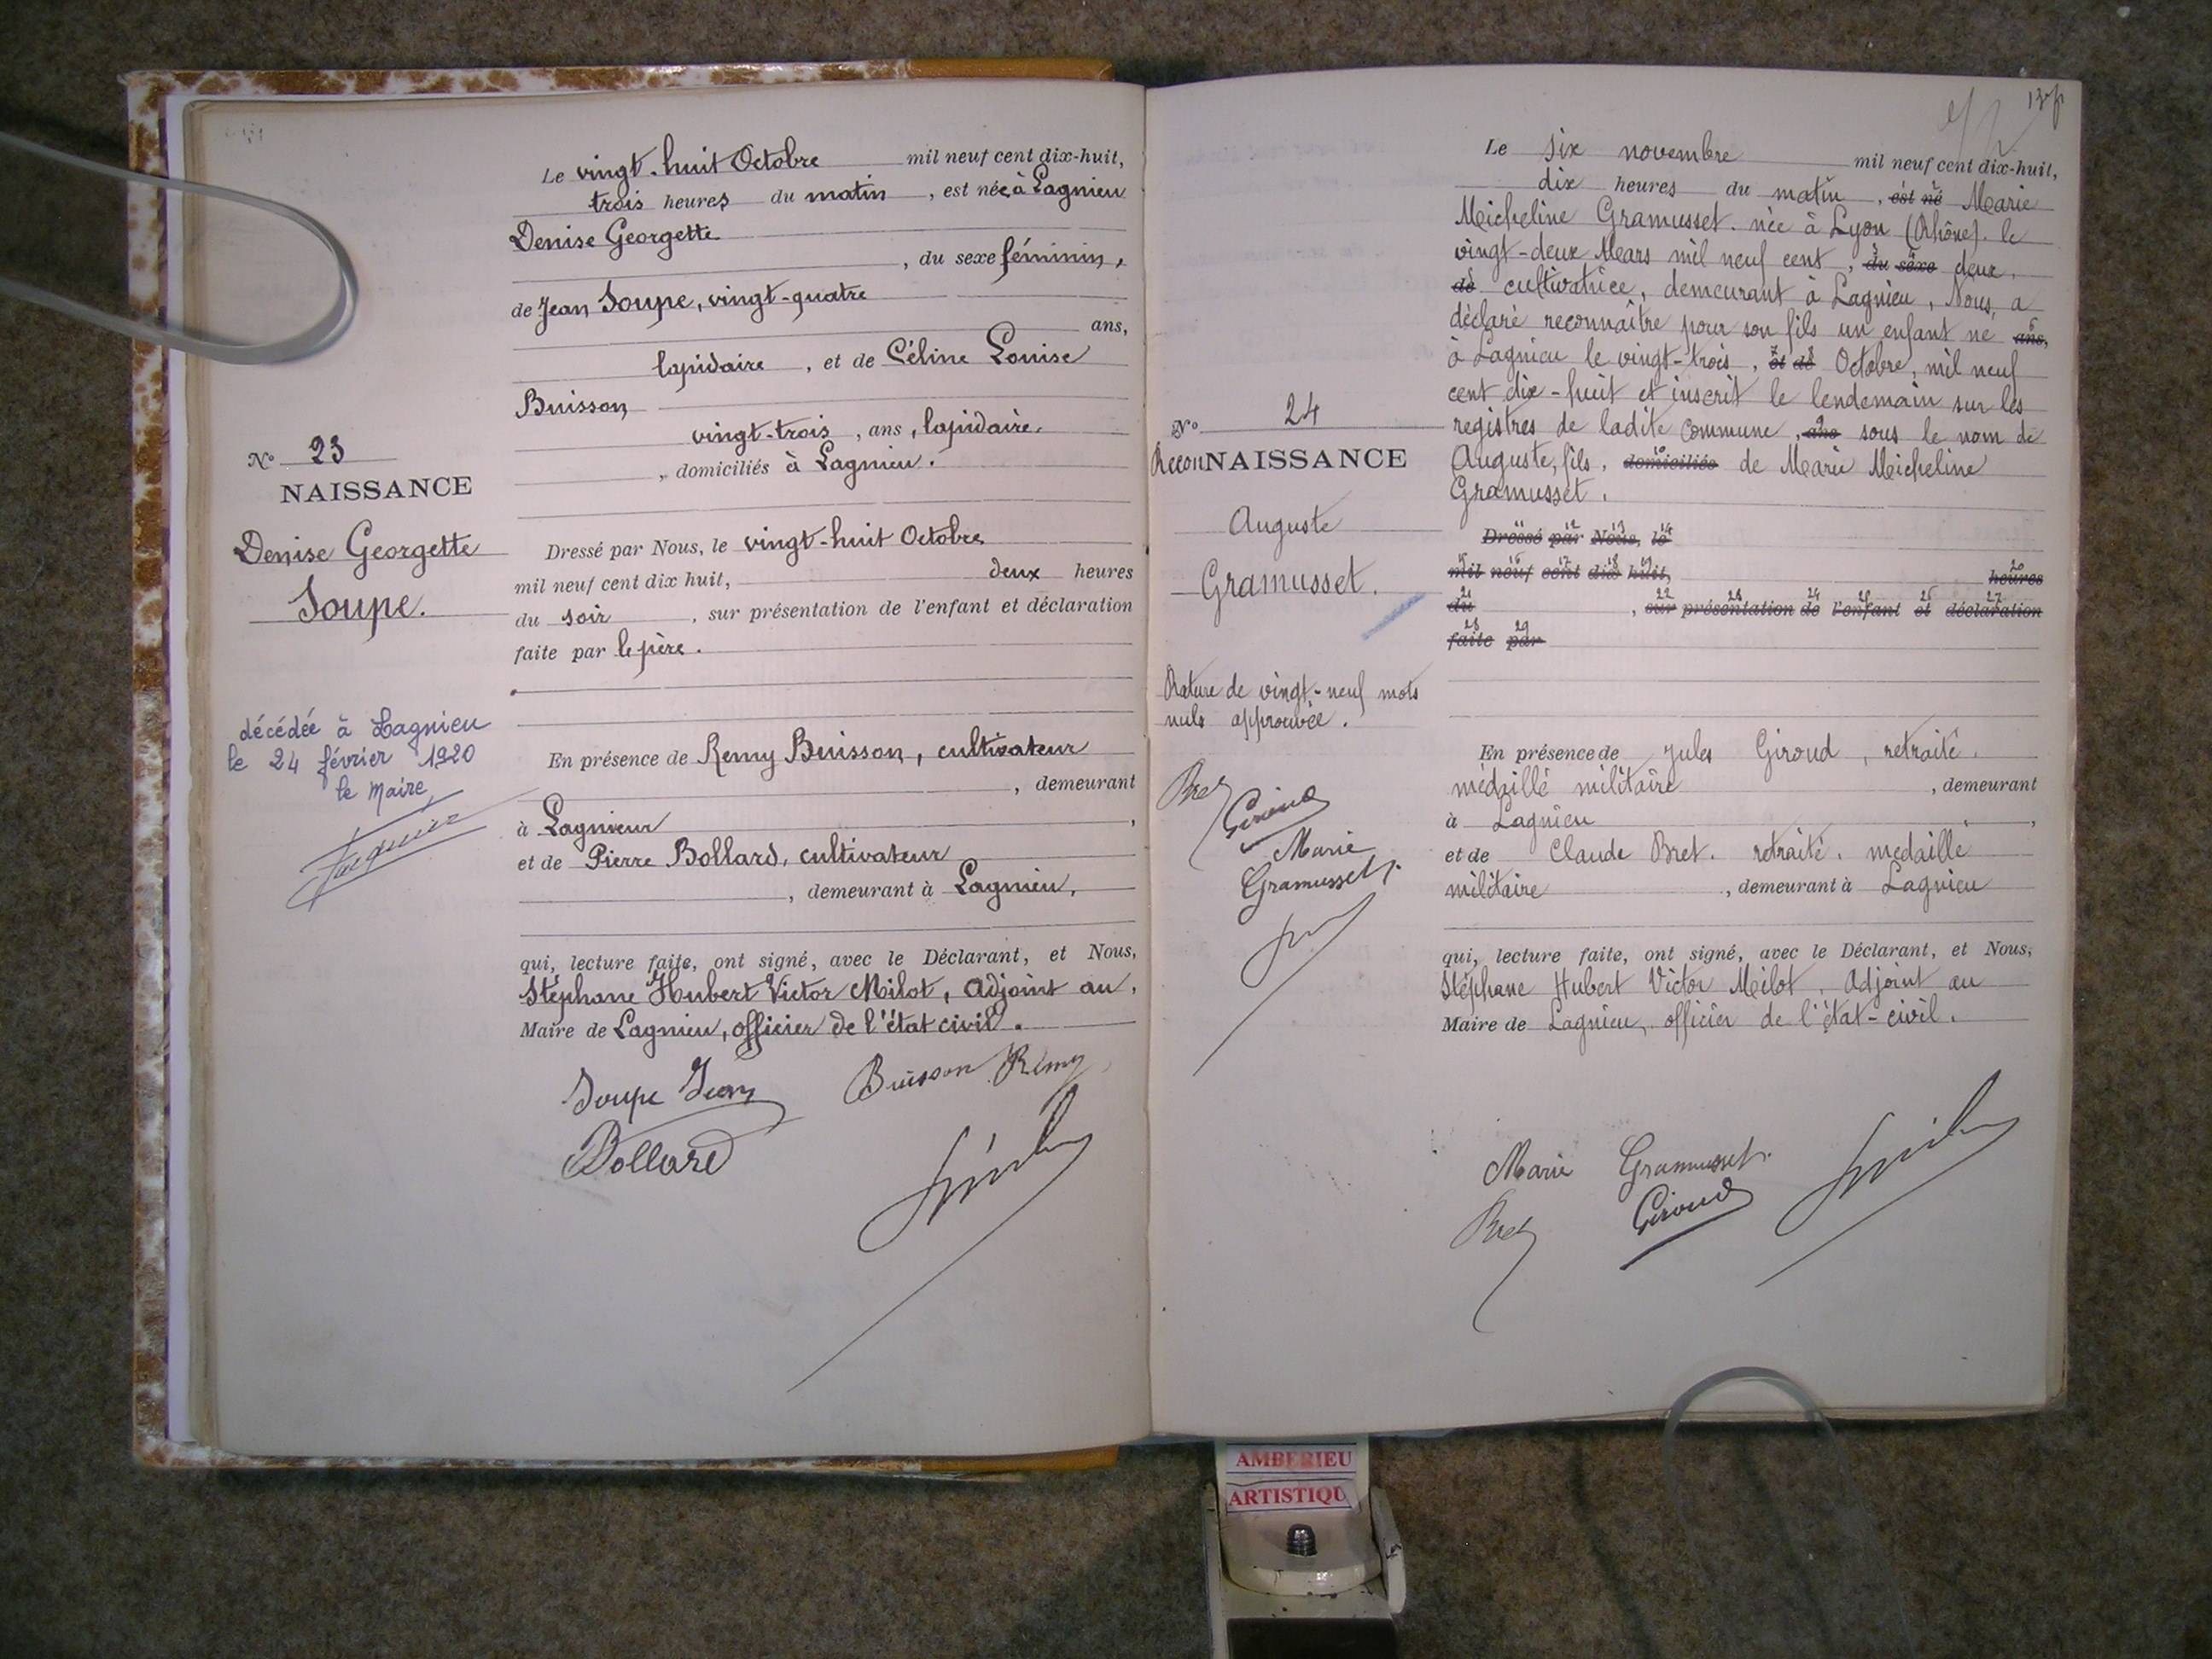 Le vingt-huit Octobre mil neuf cent dix-huit,
trois heures du matin, est née à Lagnieu
Denise Georgette
, du sexe féminin,
de Jean Soupe, vingt-quatre
ans,
lapidaire, et de Céline Louise
Buisson
vingt-trois, ans, lapidaire.
, domiciliés à Lagnieu.
N° 23
NAISSANCE
Denise Georgette
Soupe.
Dressé par Nous, le vingt-huit Octobre
mil neuf cent dix huit, deux heures
du soir, sur présentation de l'enfant et déclaration
faite par le père.
décédée à Lagnieu
le 24 février 1920
le Maire
En présence de Remy Buisson, cultivateur
, demeurant
à Lagnieu,
et de Pierre Bollard, cultivateur
, demeurant à Lagnieu,
qui, lecture faite, ont signé, avec le Déclarant, et Nous,
Stéphane Hubert Victor Milot, Adjoint au,
Maire de Lagnieu, officier de l'état civil.
Soupe Jean Buisson Rémy
Bollard
Le six novembre mil neuf cent dix-huit,
dix heures du matin, est né Marie
Micheline Gramusset. née à Lyon (Rhône). le
vingt-deux Mars mil neuf cent, du sexe deux.
de cultivatrice, demeurant à Lagnieu, Nous, a
déclaré reconnaître pour son fils un enfant né ans,
à Lagnieu le vingt-trois, et de Octobre, mil neuf
cent dix-huit et inscrit le lendemain sur les
registres de ladite commune, ans sous le nom de
Auguste, fils, domiciliés de Marie Micheline
Gramusset.
N° 24
ReconNAISSANCE
Auguste
Gramusset.
Dressé par Nous, le
mil neuf cent dix huit, heures
du , sur présentation de l'enfant et déclaration
faite par
Rature de vingt-neuf mots
nuls approuvée.
Bret
Giroud
Marie
Gramusset.
En présence de Jules Giroud, retraité.
médaillé militaire, demeurant
à Lagnieu,
et de Claude Bret. retraité. médaillé
militaire, demeurant à Lagnieu
qui, lecture faite, ont signé, avec le Déclarant, et Nous,
Stéphane Hubert Victor Milot, Adjoint au
Maire de Lagnieu, officier de l'état-civil.
Marie Gramusset.
Bret Giroud
AMBERIEU
ARTISTIQU